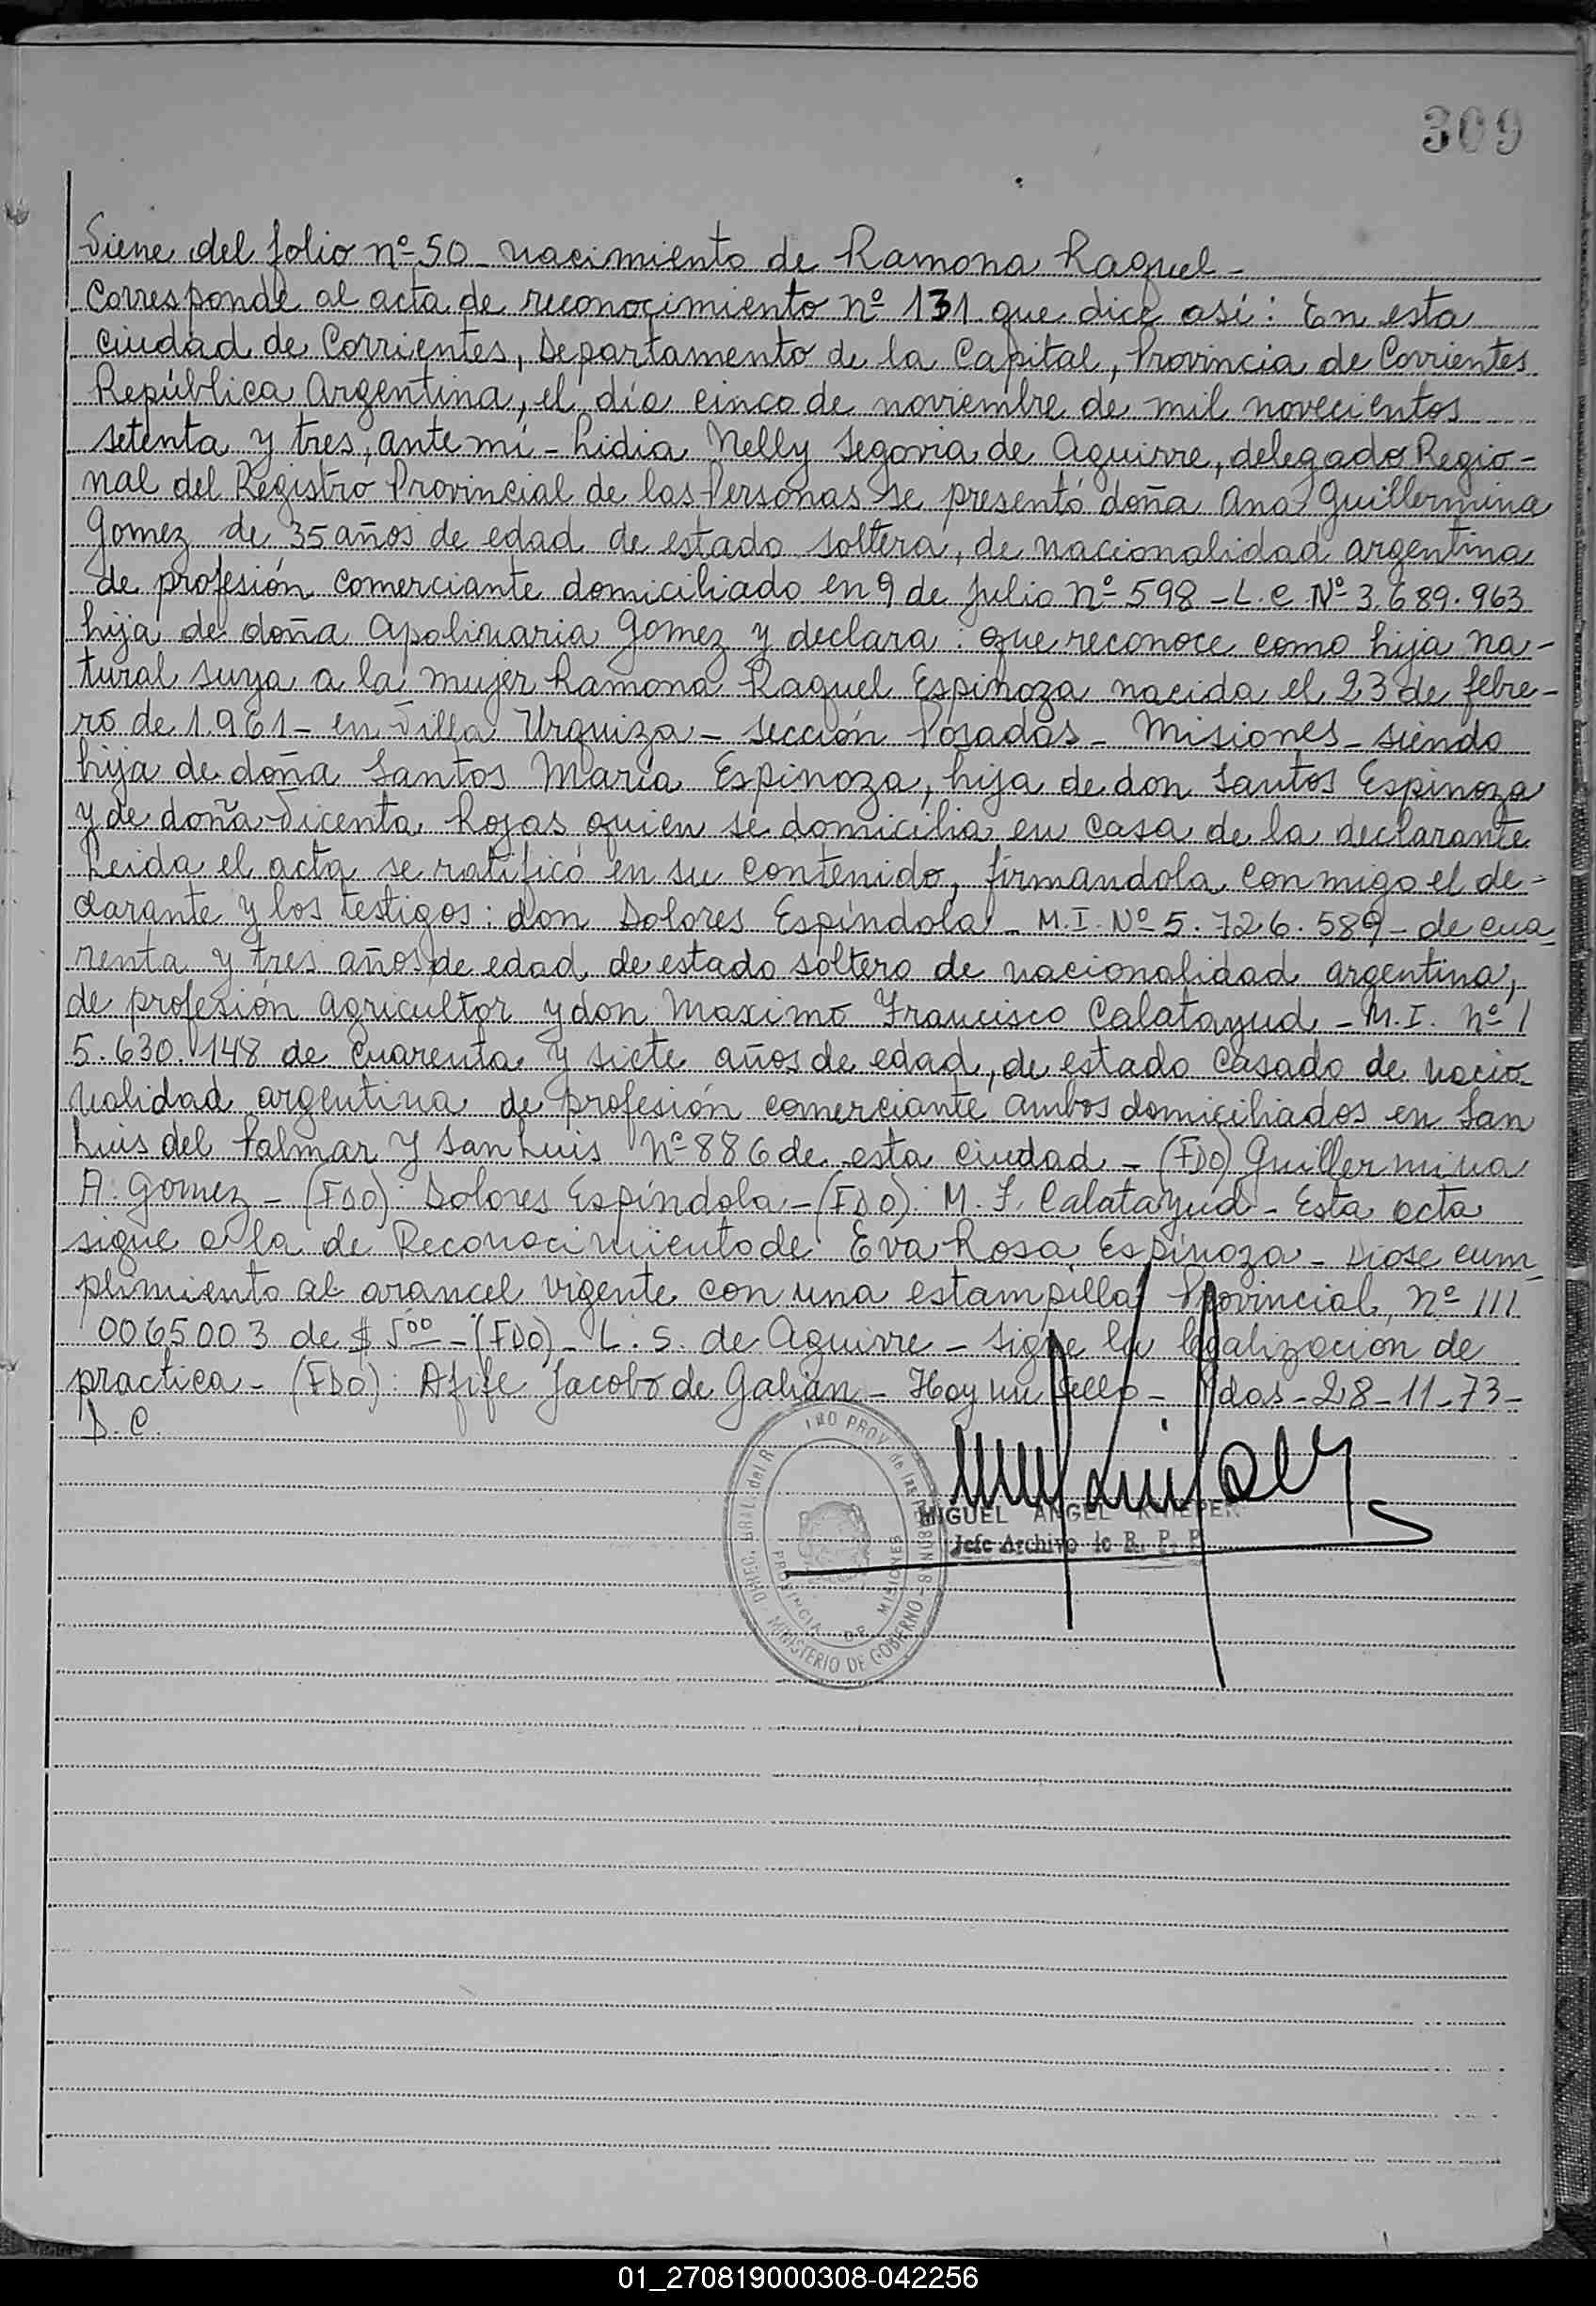 309
Viene del folio nº 50 - nacimiento de Ramona Raquel -
Corresponde al acta de reconocimiento nº 131 que dice así: En esta
ciudad de Corrientes, Departamento de la Capital, Provincia de Corrientes
República Argentina, el día cinco de noviembre de mil novecientos
setenta y tres, ante mí - Lidia Nelly Segovia de Aguirre, delegado Regio-
nal del Registro Provincial de las Personas se presentó doña Ana Guillermina
Gomez de 35 años de edad de estado soltera, de nacionalidad argentina
de profesión comerciante domiciliado en 9 de Julio nº 598 - L.C Nº 3.689.963
hija de doña Apolinaria Gomez y declara: que reconoce como hija na-
tural suya a la mujer Ramona Raquel Espinoza nacida el 23 de febre-
ro de 1.961 - en Villa Urquiza - sección Posadas - Misiones - siendo
hija de doña Santos María Espinoza, hija de don Santos Espinoza
y de doña Vicenta Rojas quien se domicilia en casa de la declarante
Leida el acta se ratificó en su contenido, firmandola conmigo el de-
clarante y los testigos: don Dolores Espíndola - M.I. Nº 5.726.589 - de cua-
renta y tres años de edad de estado soltero de nacionalidad argentina,
de profesión agricultor y don Maximo Francisco Calatayud - M.I. nº /
5.630.148 de cuarenta y siete años de edad, de estado casado de nacio-
nalidad argentina de profesión comerciante ambos domiciliados en San
Luis del Palmar y San Luis Nº 886 de esta ciudad - (FDO) Guillermina
A. Gomez - (FDO): Dolores Espíndola - (FDO): M. F. Calatayud - Esta acta
sigue a la de Reconocimiento de Eva Rosa Espinoza - Diose cum-
plimiento al arancel vigente con una estampilla Provincial nº ///
0065003 de $ 5⁰⁰ - (FDO) - L. S. de Aguirre - Sigue la legalización de
practica - (FDO): Afife Jacobo de Galian - Hay un sello - Pdas - 28 - 11 - 73 -
D. C.
DIREC. GRAL. del R TRO PROV de las P
MINISTERIO DE GOBIERNO
PROVINCIA DE MISIONES
MIGUEL ANGEL KNIEPER
Jefe Archivo R. P. P.
01_270819000308-042256